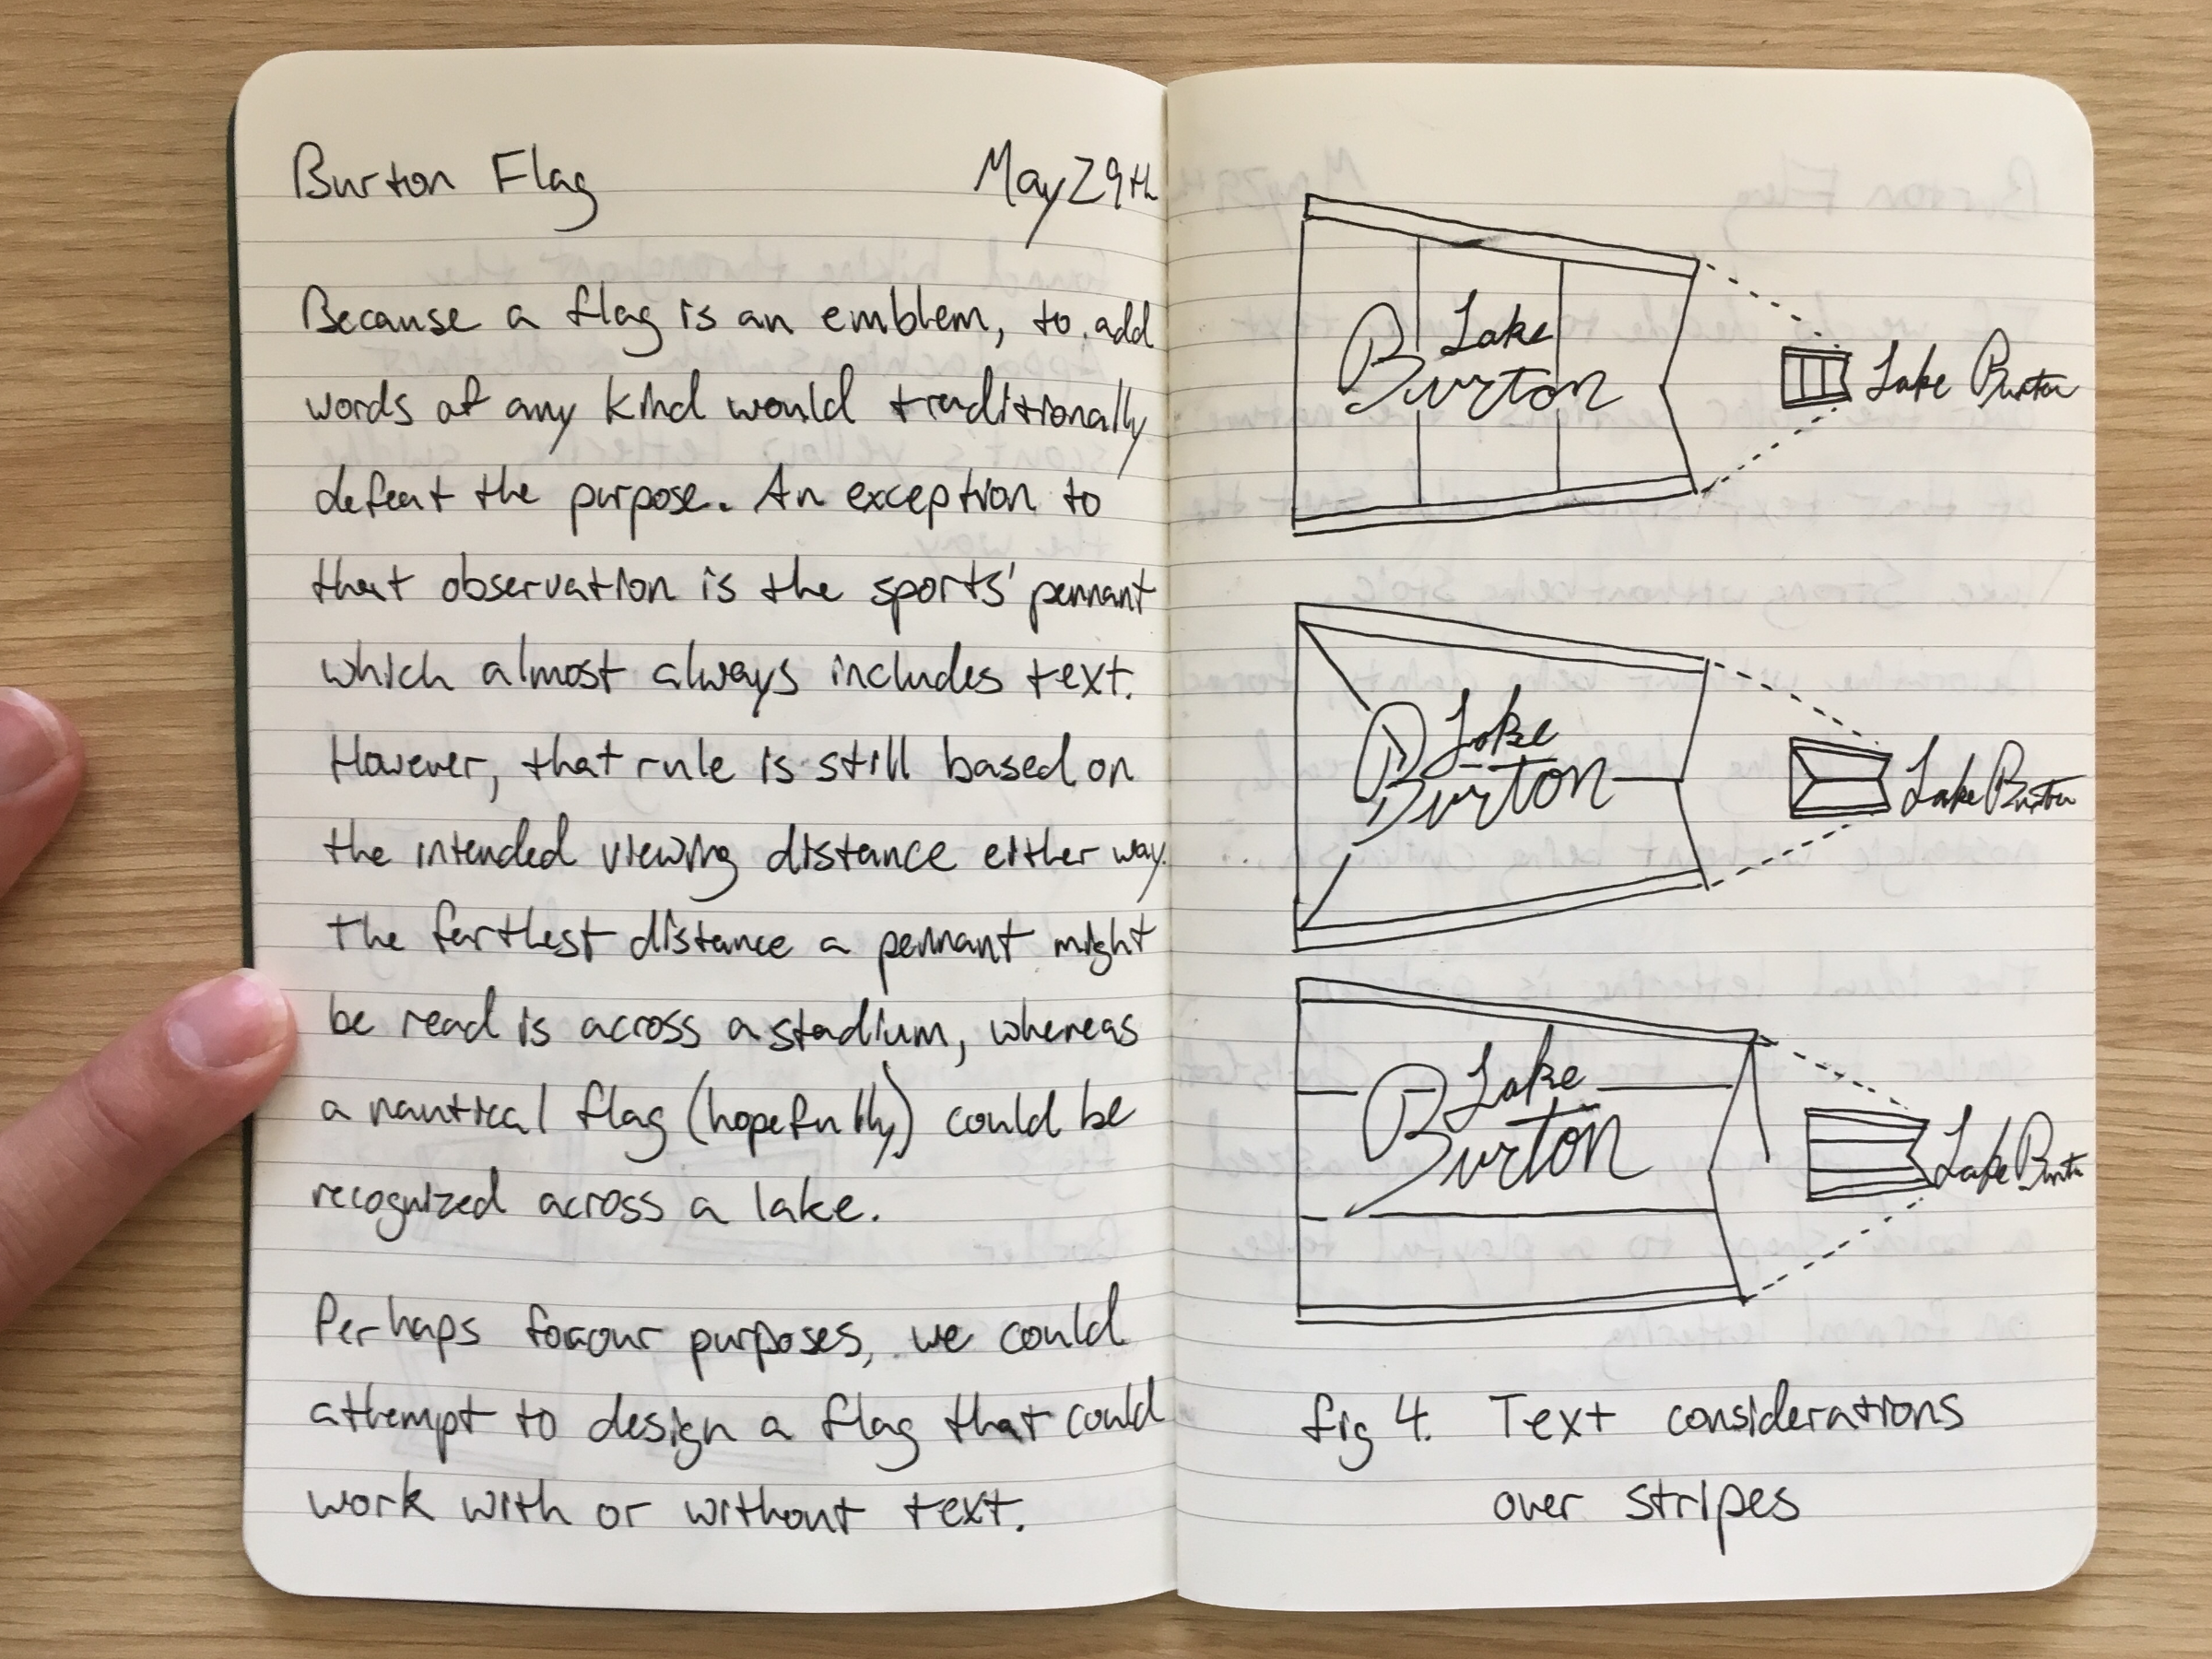 Burton Flag May 29th
Because a flag is an emblem, to add
words of any kind would traditionally
defeat the purpose. An exception to
that observation is the sports' pennant
which almost always includes text.
However, that rule is still based on
the intended viewing distance either way.
The farthest distance a pennant might
be read is across a stadium, whereas
a nautical flag (hopefully) could be
recognized across a lake.
Perhaps for our purposes, we could
attempt to design a flag that could
work with or without text.
Lake
Burton
Lake Burton
Lake
Burton
Lake Burton
Lake
Burton
Lake Burton
fig 4. Text considerations
over stripes